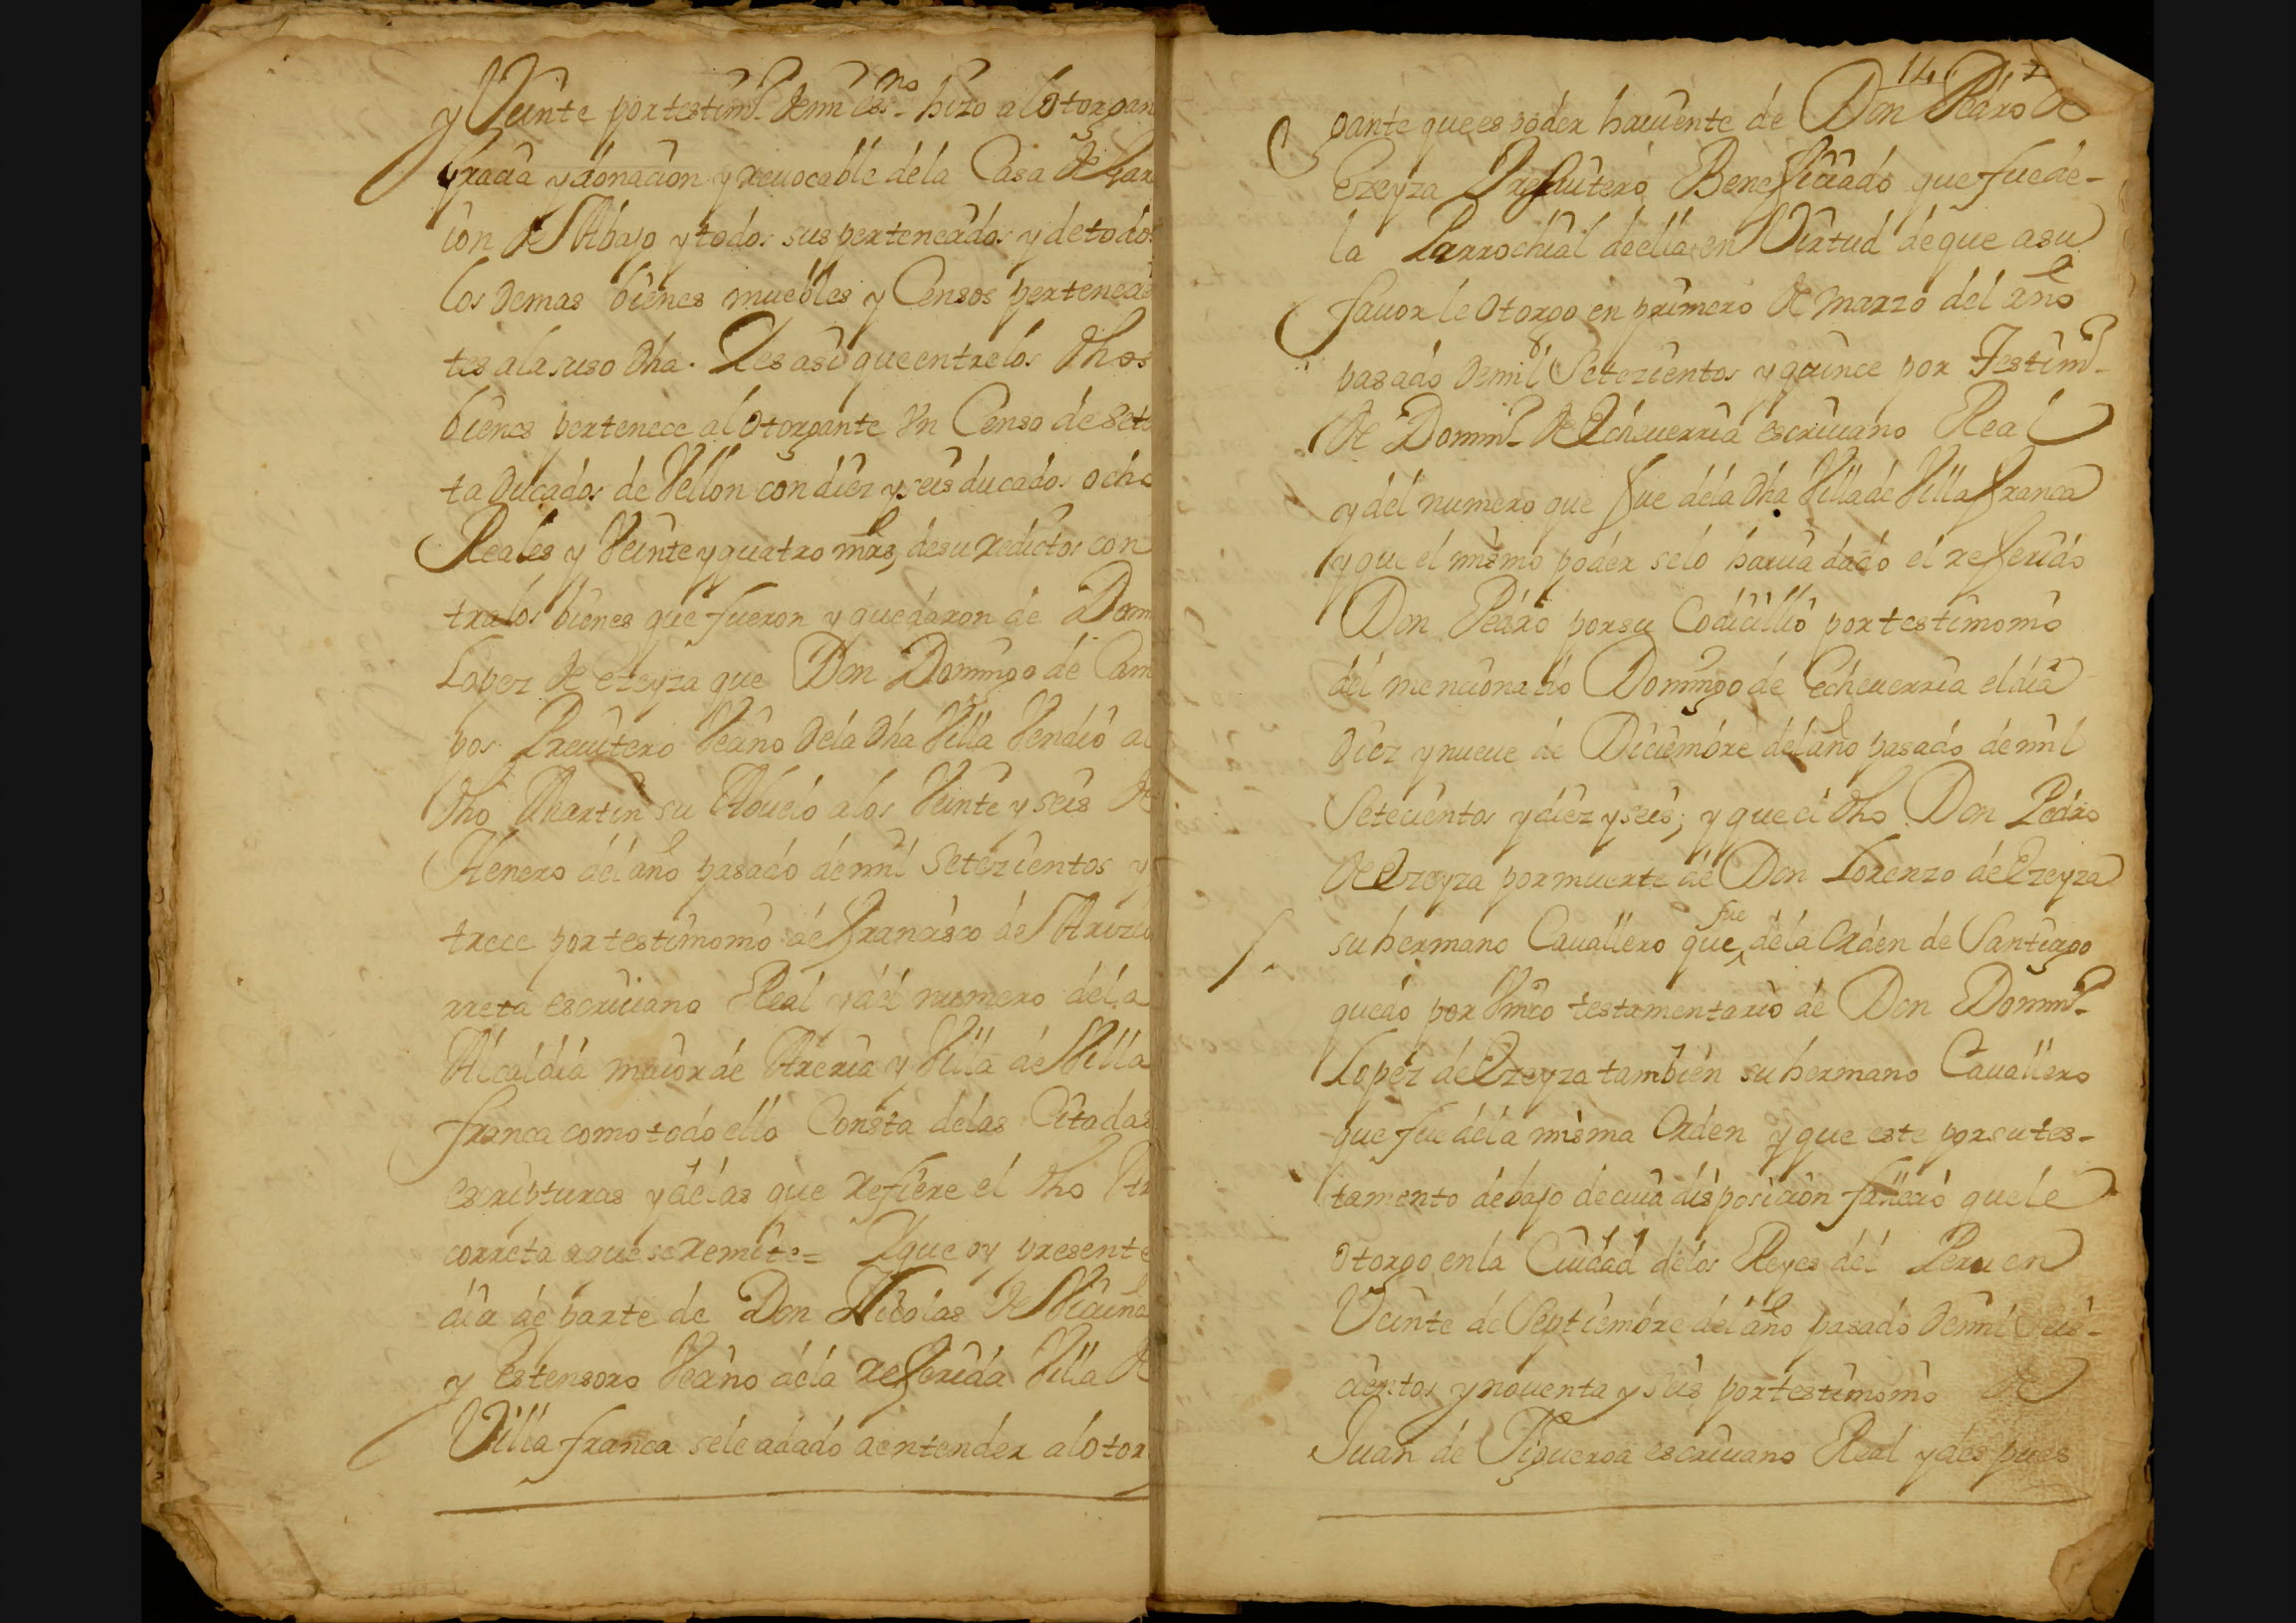 y Veinte por testim.º de mi es.no hizo al otorgan
gracia y donacion yrreuocable de la Casa de Gar
cion de Abajo y todos sus pertenecidos y de todos
los demas bienes muebles y Censos pertenecie
tes a la suso dha. Y es asi que entre los dhos
bienes pertenece al otorgante Vn Censo de sete
ta ducados de Vellon con diez y seis ducados ocho
Reales y Veinte y quatro mrs, de su redictos con
tra los bienes que fueron y quedaron de Dom
Lopez de ezeyza que Don Domingo de Cam
pos Presuitero Vecino de la dha Villa Vendio al
dho Martin su Abuelo a los Veinte y seis de
Henero del año pasado de mil setezientos y
trece por testimonio de Francisco de Arizco
rreta escriuano Real y del numero de la
Alcaldia maior de Areria y Villa de Villa
franca como todo ello Consta de las Citadas
escripturas y de las que refiere el dho Ariz
correta a que se remite = Y que oy presente
dia de parte de Don Nicolas de Vicuña
y estensoro Vecino de la referida Villa de
Villa franca se le a dado a entender al otor
14
gante que es poder hauiente de Don Pedro de
Ezeyza Presuitero Beneficiado que fue de-
la Parrochial de ella en Virtud de que a su
fauor le otorgo en primero de marzo del año
pasado de mil Setezientos y quince por Testim.º
de Domin.º de Echeuerria escriuano Real
y del numero que fue de la dha Villa de Villa franca
y que el mismo poder se lo hauia dado el referido
Don Pedro por su Codicillio por testimonio
del mencionado Domingo de Echeuerria el dia
diez y nueue de Diciembre del año pasado de mil
Setecientos y diez y seis; y que el dho Don Pedro
de Ezeyza por muerte de Don Lorenzo de Ezeyza
su hermano Cauallero que fue de la Orden de Santiago
quedo por Vnico testamentario de Don Domin.º
Lopez de Ezeyza tambien su hermano Cauallero
que fue de la misma Orden y que este por su tes-
tamento debajo de cuia disposicion fallecio que le
otorgo en la Ciudad de los Reyes del Peru en
Veinte de Septiembre del año pasado de mil Seis-
cientos y nouenta y seis por testimonio de
Juan de Figueroa escriuano Real y despues